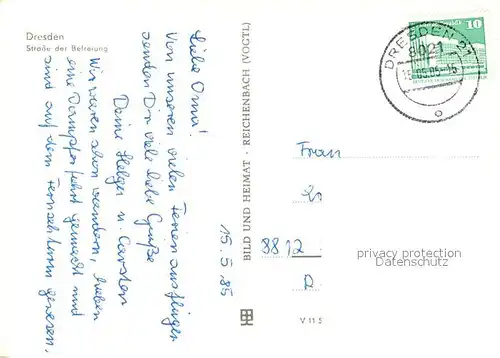 Dresden
Straße der Befreiung
Liebe Oma!
Von unseren vielen Ferienausflügen
senden Dir viele liebe Grüße
Deine Helga u. Carsten
Wir waren schon wandern, haben
eine Dampferfahrt gemacht und
sind auf dem Fernsehturm gewesen.
15.5.85
BILD UND HEIMAT · REICHENBACH (VOGTL)
V 11 5
10
DRESDEN 21
8021
15.05.85-15
Frau
8812
privacy protection
Datenschutz